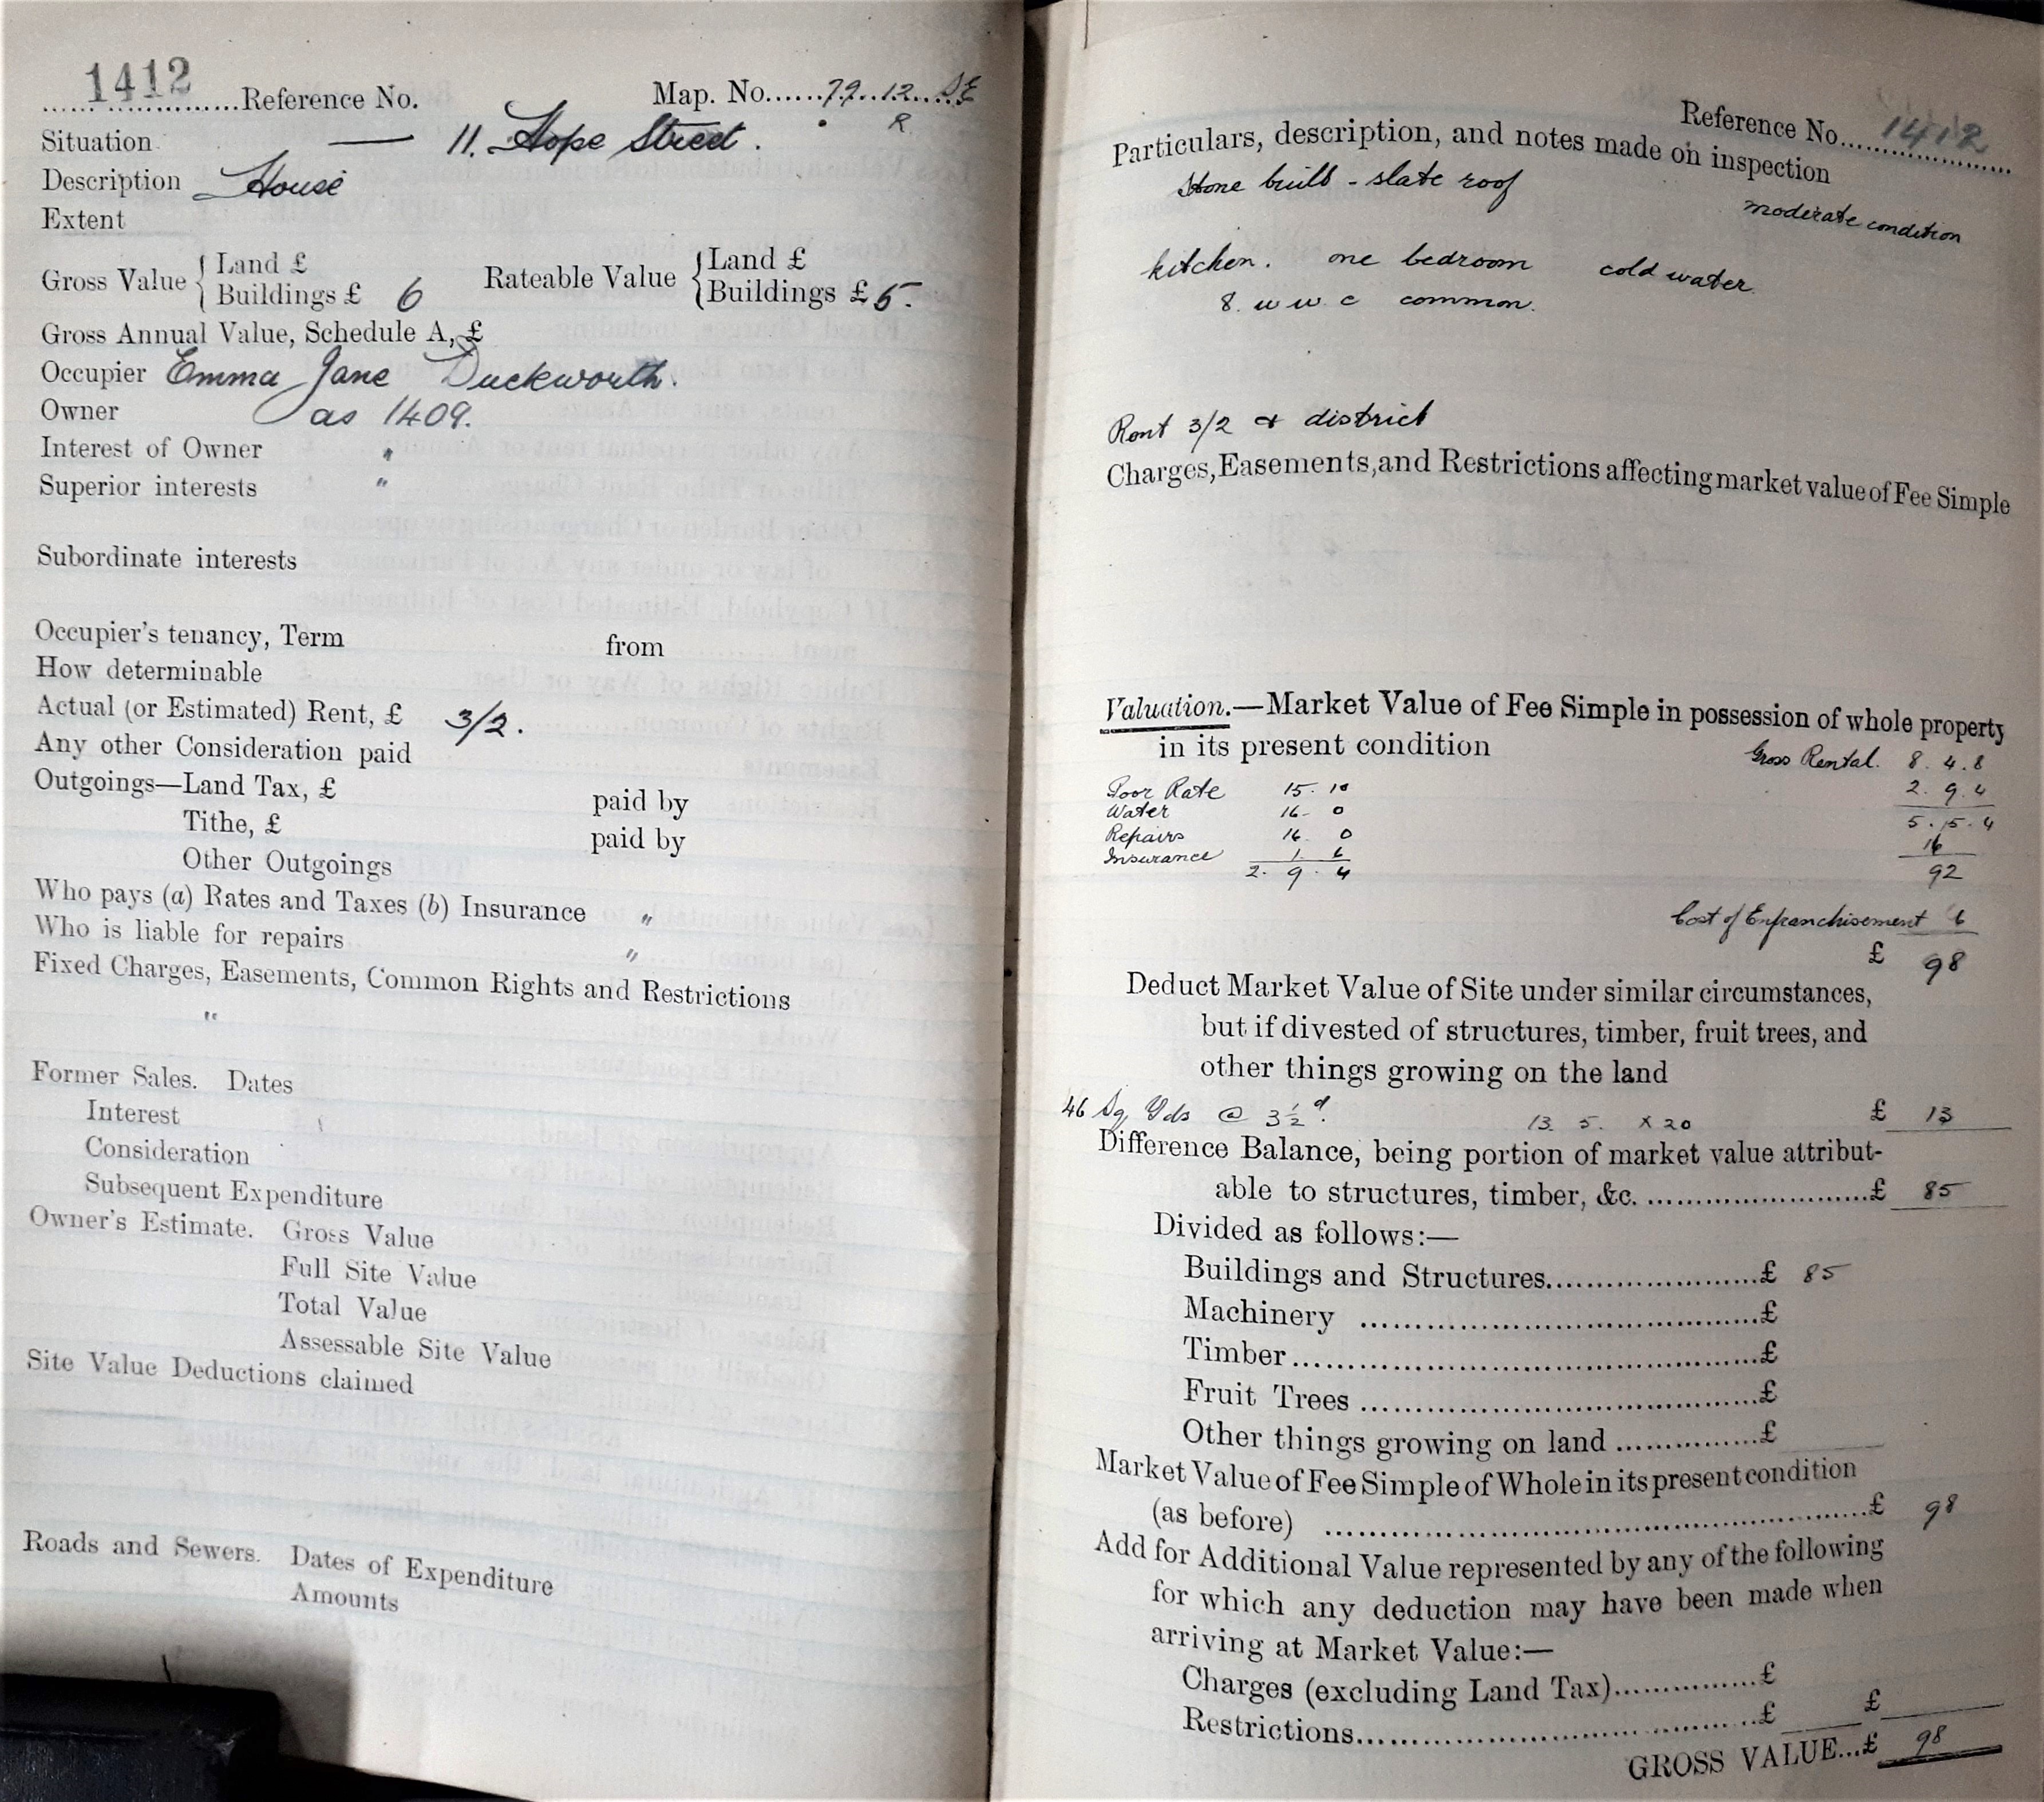 1412 Reference No. Map. No. 79.12. SE
R.
Situation — 11. Hope Street.
Description House
Extent
Gross Value { Land £
Buildings £ 6
Rateable Value { Land £
Buildings £ 5.
Gross Annual Value, Schedule A, £
Occupier Emma Jane Duckworth.
Owner as 1409.
Interest of Owner "
Superior interests "
Subordinate interests
Occupier's tenancy, Term from
How determinable
Actual (or Estimated) Rent, £ 3/2.
Any other Consideration paid
Outgoings—Land Tax, £ paid by
Tithe, £ paid by
Other Outgoings
Who pays (a) Rates and Taxes (b) Insurance "
Who is liable for repairs "
Fixed Charges, Easements, Common Rights and Restrictions
"
Former Sales. Dates
Interest
Consideration
Subsequent Expenditure
Owner's Estimate. Gross Value
Full Site Value
Total Value
Assessable Site Value
Site Value Deductions claimed
Roads and Sewers. Dates of Expenditure
Amounts
Reference No. 1412
Particulars, description, and notes made on inspection
Stone built - slate roof
moderate condition
kitchen. one bedroom cold water
8. w w. c common.
Rent 3/2 & district
Charges, Easements, and Restrictions affecting market value of Fee Simple
Valuation.—Market Value of Fee Simple in possession of whole property
in its present condition
Gross Rental. 8. 4. 8
Poor Rate 15. 10 2. 9. 4
Water 16. 0 5. 15. 4
Repairs 16. 0 16
Insurance 1. 6
2. 9. 4 92
Cost of Enfranchisement 6
£ 98
Deduct Market Value of Site under similar circumstances,
but if divested of structures, timber, fruit trees, and
other things growing on the land
46 Sq Yds @ 3½d. 13. 5. x 20 £ 13
Difference Balance, being portion of market value attribut-
able to structures, timber, &c. £ 85
Divided as follows:—
Buildings and Structures £ 85
Machinery £
Timber £
Fruit Trees £
Other things growing on land £
Market Value of Fee Simple of Whole in its present condition
(as before) £ 98
Add for Additional Value represented by any of the following
for which any deduction may have been made when
arriving at Market Value:—
Charges (excluding Land Tax) £
Restrictions £ £
GROSS VALUE...£ 98